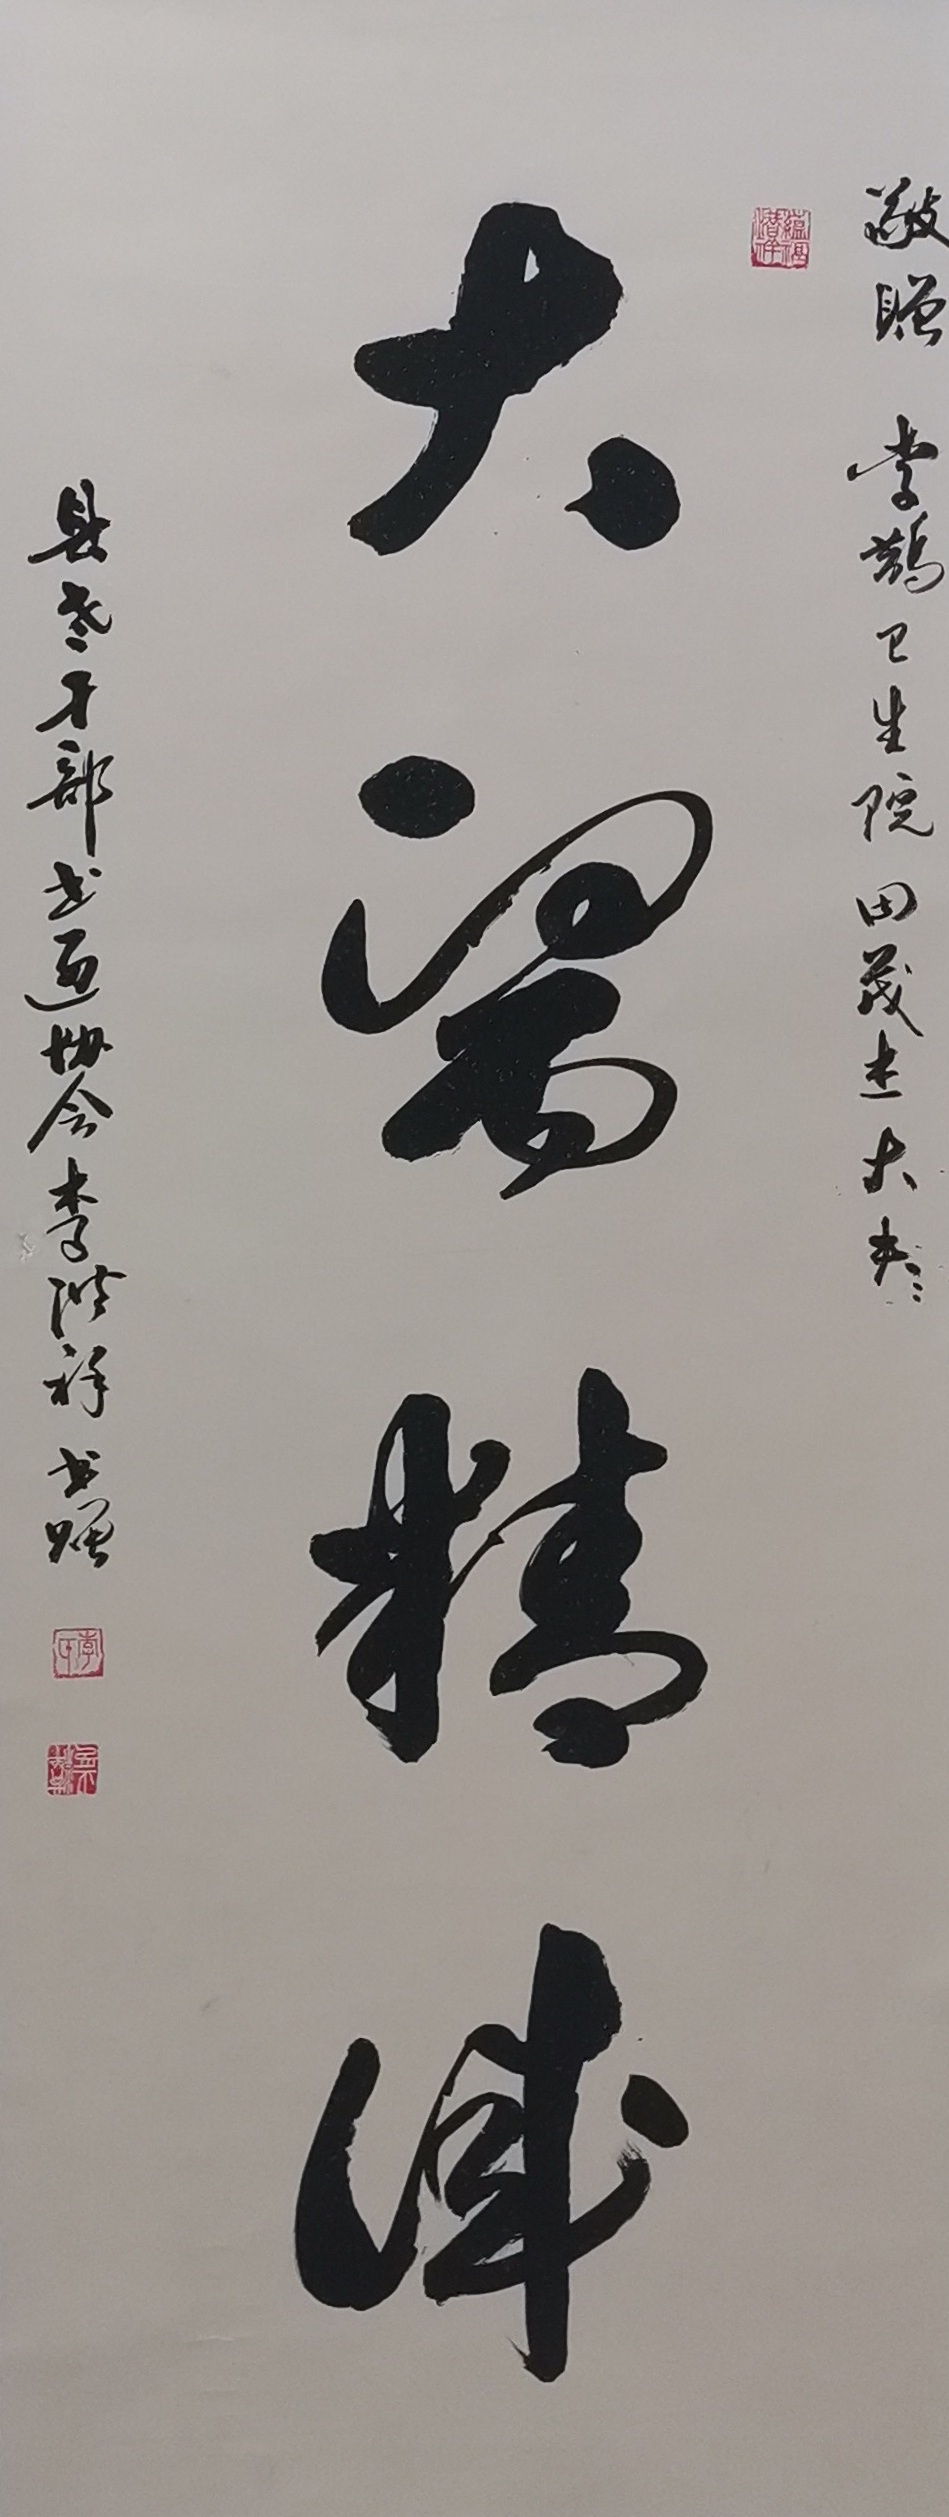 敬贈 李鹊卫生院 田茂杰大夫
大醫精诚
县老干部书画协会李祥书赠